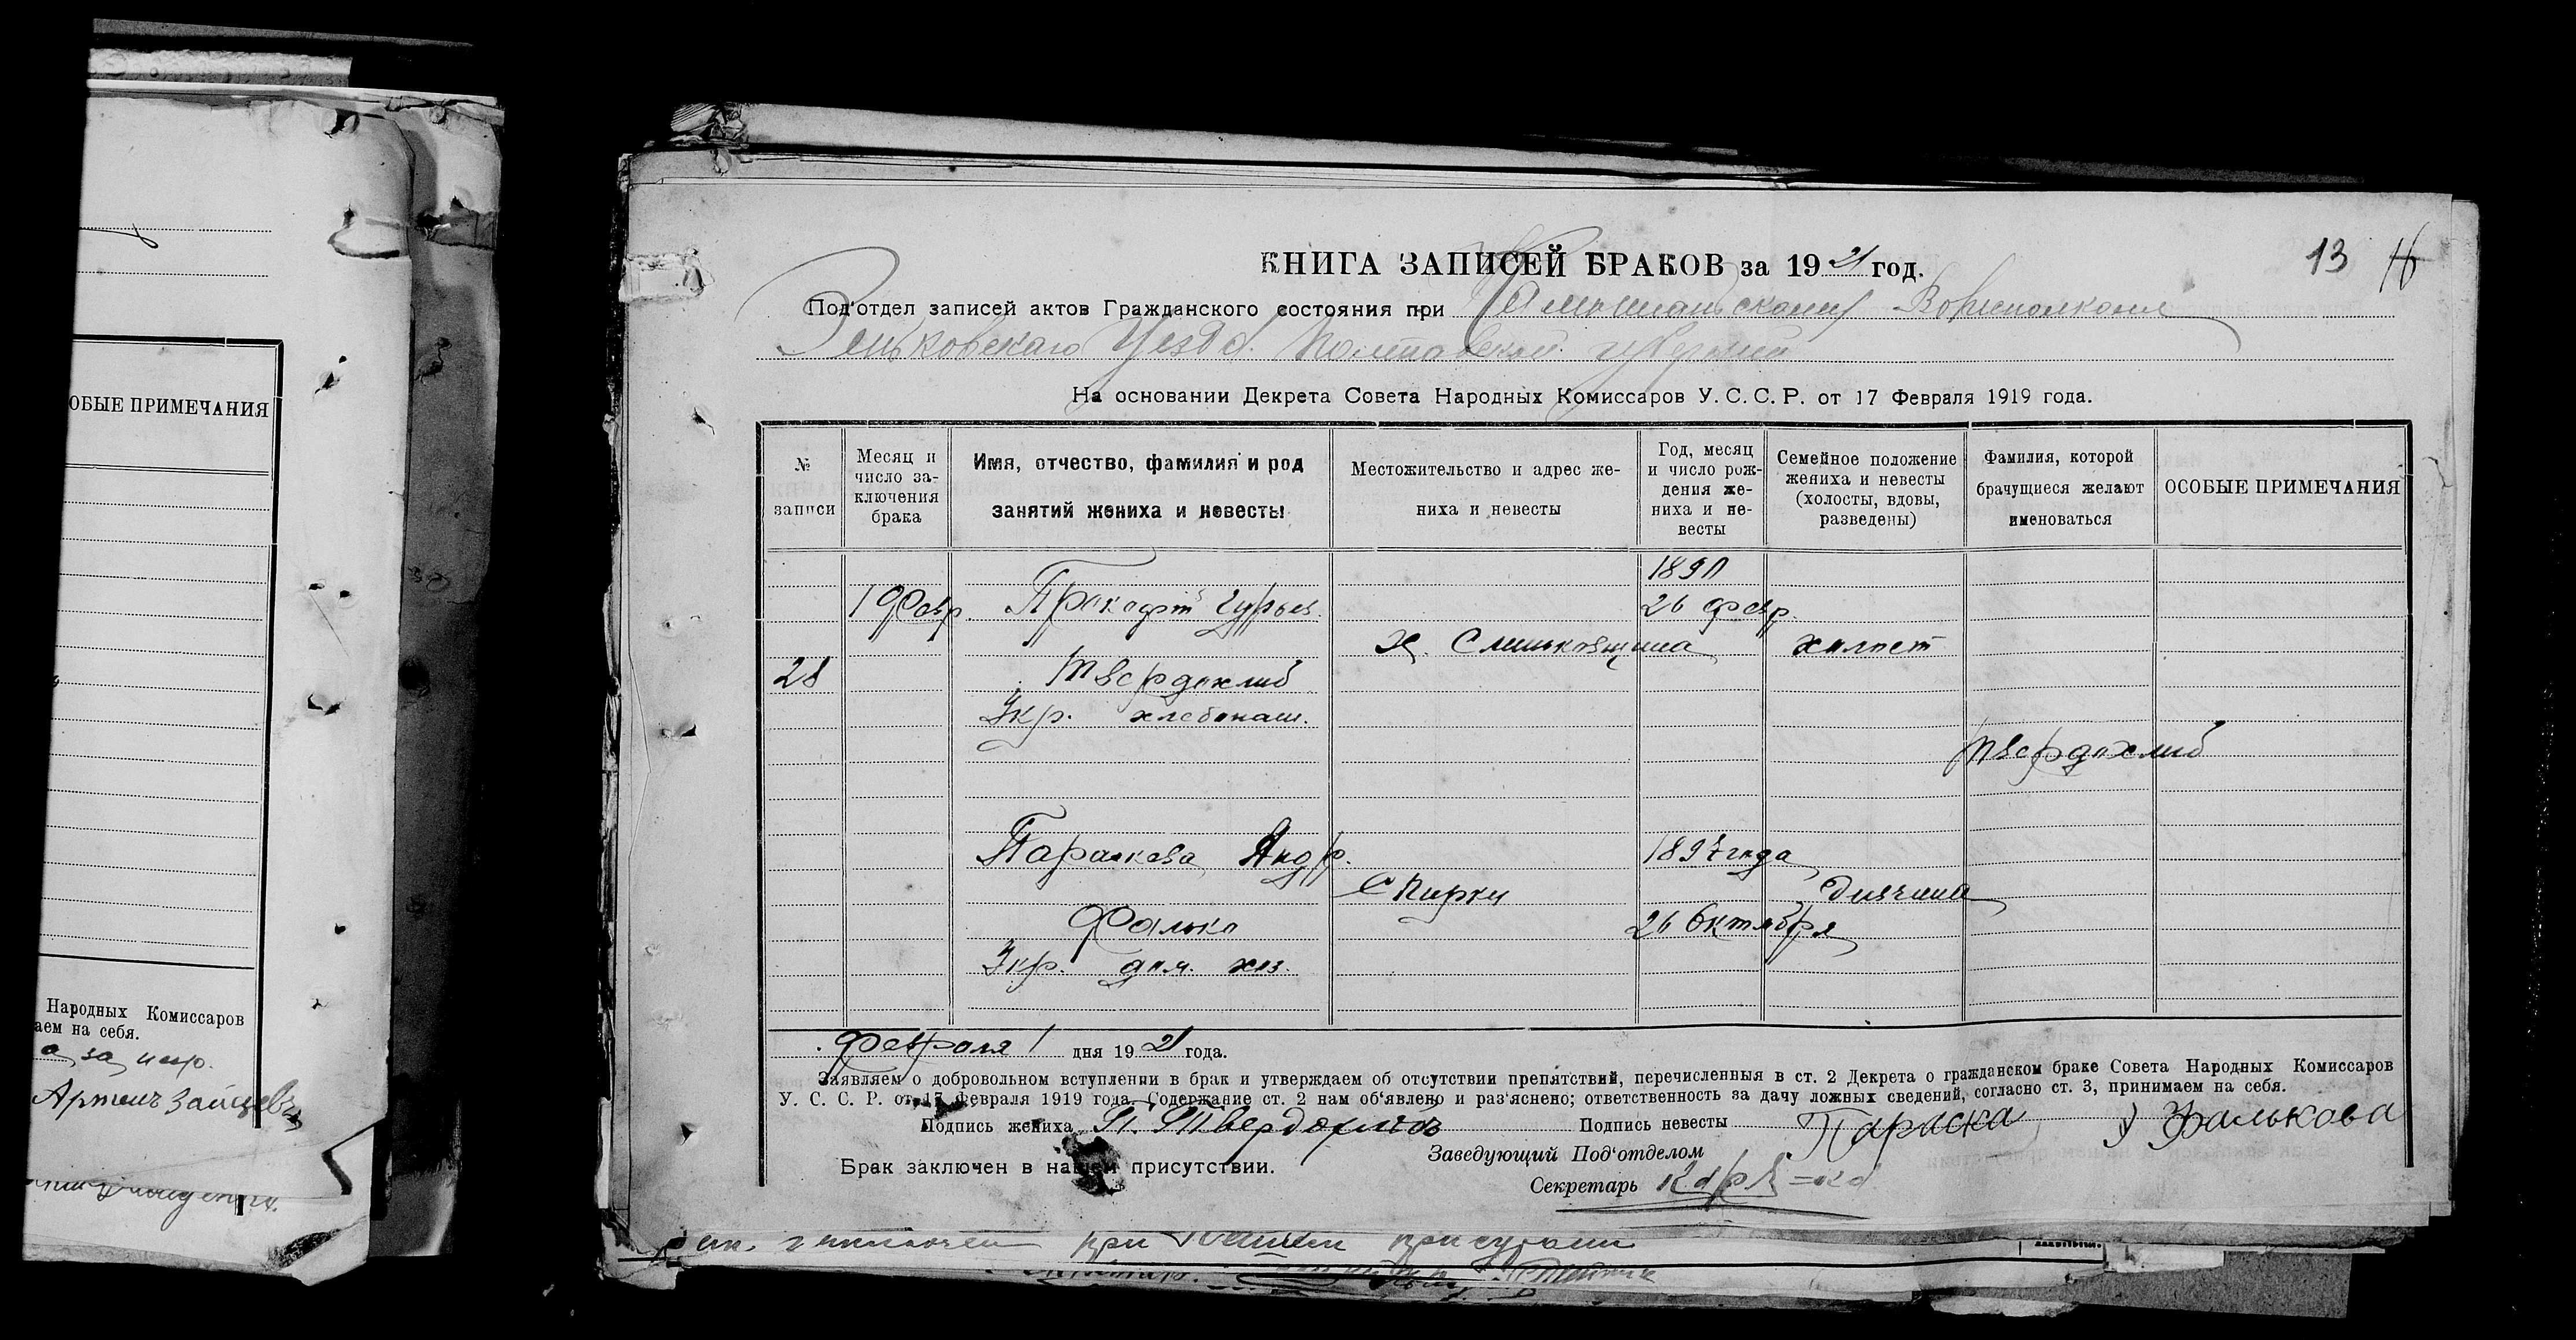 ОБЫЕ ПРИМЕЧАНИЯ
Народных Комиссаров
аем на себя.
а за неgр.
Артемъ Зайцевъ
13
КНИГА ЗАПИСЕЙ БРАКОВ за 1921 год.
Под'отдел записей актов Гражданского состояния при Камышанском Волисполкоме
Зеньковскаго Уезда Полтавской губернии
На основании Декрета Совета Народных Комиссаров У. С. С. Р. от 17 Февраля 1919 года.
№ записи
Месяц и число заключения брака
Имя, отчество, фамилия и род занятий жениха и невесты
Местожительство и адрес жениха и невесты
Год, месяц и число рождения жениха и невесты
Семейное положение жениха и невесты (холосты, вдовы, разведены)
Фамилия, которой брачущиеся желают именоваться
ОСОБЫЕ ПРИМЕЧАНИЯ
1 Февр. Прокофт Гурьев. 26 февр.
х. Слиньковщина холост
28 Твердохлиб
Укр. хлебопаш.
Твердохлиб
Параскева Андр. 1897 года
с Пирки дивчина
Фалько 26 Октября
Укр. дом. хоз.
Февраля 1 дня 1921 года.
Заявляем о добровольном вступлении в брак и утверждаем об отсутствии препятствий, перечисленныя в ст. 2 Декрета о гражданском браке Совета Народных Комиссаров
У. С. С. Р. от 17 Февраля 1919 года. Содержание ст. 2 нам об'явлено и раз'яснено; ответственность за дачу ложных сведений, согласно ст. 3, принимаем на себя.
Подпись жениха П. Твердохлѣб Подпись невесты Параска Фалькова
Заведующий Под'отделом
Брак заключен в нашем присутствии.
Секретарь